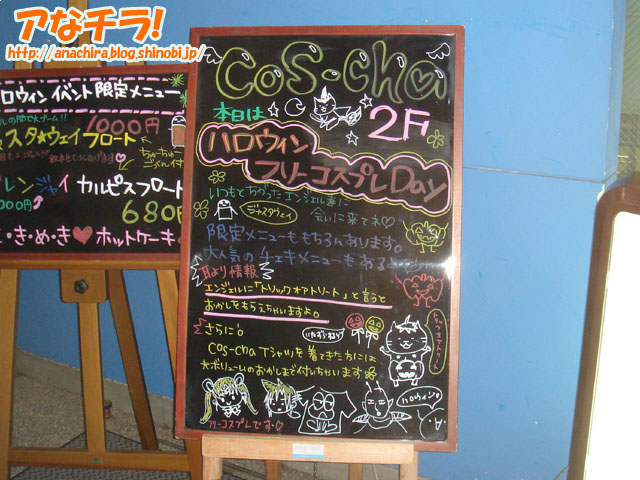 アなチラ!
http://anachira.blog.shinobi.jp/
ハロウィン イベント限定メニュー
1000円
スタ★ウェイフロート
レンジャイ カルピスフロート
000円
680円
と・き・め・き♥ホットケーキ
cos-cha
本日は
2F
ハロウィン
フリーコスプレDay
いつもとちがったエンジェル達に
会いに来てネ♡
ジャスタウェイ
限定メニューももちろんあります。
大人気のチェキメニューもある
耳より情報
エンジェルに「トリックオアトリート」と言うと
おかしをもらえちゃいますよ。
さらに!
いたずらしちゃうよ
cos-cha Tシャツを着てきた方には
大ボリュームのおかしまで付いちゃいます
トリックオアトリート
ハロウィン
フリーコスプレです♡